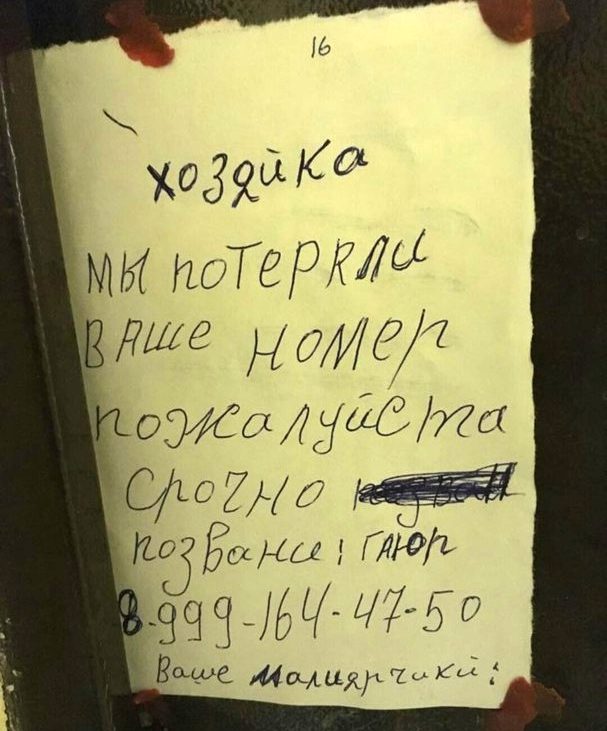 16
хозяйка
мы потеряли
ваше номер
пожалуйста
срочно
позвание! ГАЮР
8-999-164-47-50
Ваше малиярчики: